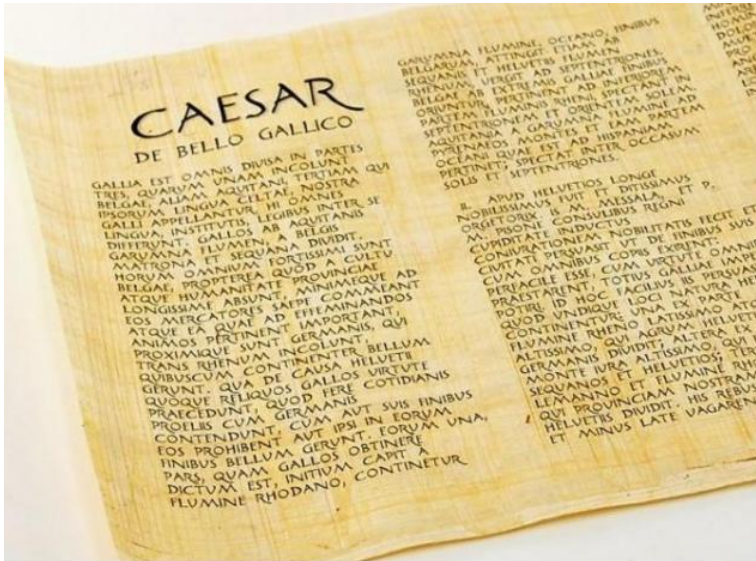 CAESAR
DE BELLO GALLICO
GALLIA EST OMNIS DIVISA IN PARTES
TRES, QUARUM UNAM INCOLUNT
BELGAE, ALIAM AQUITANI, TERTIAM QUI
IPSORUM LINGUA CELTAE, NOSTRA
GALLI APPELLANTUR. HI OMNES
LINGUA, INSTITUTIS, LEGIBUS INTER SE
DIFFERUNT. GALLOS AB AQUITANIS
GARUMNA FLUMEN, A BELGIS
MATRONA ET SEQUANA DIVIDIT.
HORUM OMNIUM FORTISSIMI SUNT
BELGAE, PROPTEREA QUOD A CULTU
ATQUE HUMANITATE PROVINCIAE
LONGISSIME ABSUNT, MINIMEQUE AD
EOS MERCATORES SAEPE COMMEANT
ATQUE EA QUAE AD EFFEMINANDOS
ANIMOS PERTINENT IMPORTANT,
PROXIMIQUE SUNT GERMANIS, QUI
TRANS RHENUM INCOLUNT,
QUIBUSCUM CONTINENTER BELLUM
GERUNT. QUA DE CAUSA HELVETII
QUOQUE RELIQUOS GALLOS VIRTUTE
PRAECEDUNT, QUOD FERE COTIDIANIS
PROELIIS CUM GERMANIS
CONTENDUNT, CUM AUT SUIS FINIBUS
EOS PROHIBENT AUT IPSI IN EORUM
FINIBUS BELLUM GERUNT. EORUM UNA,
PARS, QUAM GALLOS OBTINERE
DICTUM EST, INITIUM CAPIT A
FLUMINE RHODANO, CONTINETUR
GARUMNA FLUMINE, OCEANO, FINIBUS
BELGARUM, ATTINGIT ETIAM AB
SEQUANIS ET HELVETIIS FLUMEN
RHENUM, VERGIT AD SEPTENTRIONES.
BELGAE AB EXTREMIS GALLIAE FINIBUS
ORIUNTUR, PERTINENT AD INFERIOREM
PARTEM FLUMINIS RHENI, SPECTANT IN
SEPTENTRIONEM ET ORIENTEM SOLEM.
AQUITANIA A GARUMNA FLUMINE AD
PYRENAEOS MONTES ET EAM PARTEM
OCEANI QUAE EST AD HISPANIAM
PERTINET; SPECTAT INTER OCCASUM
SOLIS ET SEPTENTRIONES.
II. APUD HELVETIOS LONGE
NOBILISSIMUS FUIT ET DITISSIMUS
ORGETORIX. IS M. MESSALA, ET P.
M. PISONE CONSULIBUS REGNI
CUPIDITATE INDUCTUS
CONIURATIONEM NOBILITATIS FECIT ET
CIVITATI PERSUASIT UT DE FINIBUS SUIS
CUM OMNIBUS COPIIS EXIRENT:
PERFACILE ESSE, CUM VIRTUTE OMNI
PRAESTARENT, TOTIUS GALLIAE IMPE
POTIRI. ID HOC FACILIUS IIS PERSUA
QUOD UNDIQUE LOCI NATURA
CONTINENTUR: UNA EX PARTE
FLUMINE RHENO LATISSIMO AT
ALTISSIMO, QUI AGRUM HELVET
GERMANIS DIVIDIT; ALTERA EX
MONTE IURA ALTISSIMO, QUI
SEQUANOS ET HELVETIOS; TE
LEMANNO ET FLUMINE RH
QUI PROVINCIAM NOSTRAM
HELVETIIS DIVIDIT. HIS REBUS
ET MINUS LATE VAGAREN